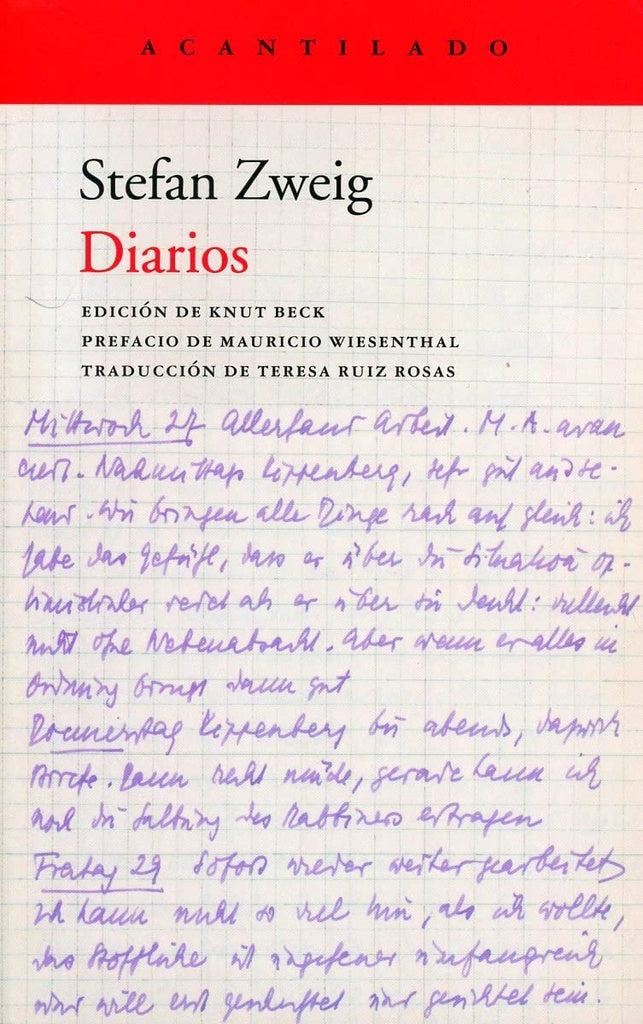 ACANTILADO
Stefan Zweig
Diarios
EDICIÓN DE KNUT BECK
PREFACIO DE MAURICIO WIESENTHAL
TRADUCCIÓN DE TERESA RUIZ ROSAS
Mittwoch 27 Allerhand Arbeit. M. A. avan
ciert. Nachmittags Kippenberg, sehr gut und
Wir bringen alle Dinge rasch auf gleich: ich
habe das Gefühl, dass er über die Situation op-
timistischer redet als er über sie denkt: vielleicht
nicht ohne Nebenabsicht. Aber wenn er alles in
Ordnung bringt dann gut
Donnerstag Kippenberg bis abends, dazwisch
Briefe. Dann recht müde, gerade kann ich
noch die Salbung des Rabbiners ertragen
Freitag 29 Sofort wieder weitergearbeitet
Ich kann nicht so viel hin, als ich wollte,
das Stoffliche ist ungeheuer umfangreich
und will erst gesichtet sein.